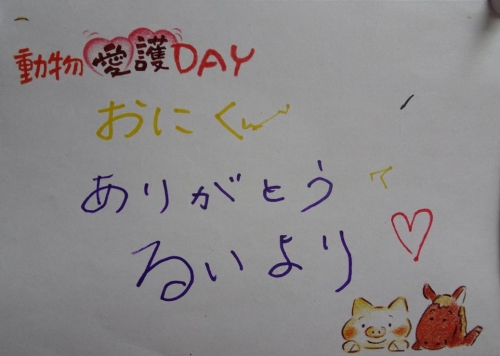 動物愛護DAY
おにく
ありがとう
るいより